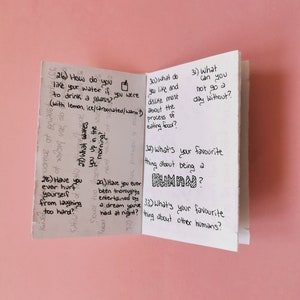 26) How do you
like your water if you were
to drink a glass?
(with lemon, ice/carbonated/warm?)
27) What wakes
you up in the
morning?
28) Have you
ever hurt
yourself
from laughing
too hard?
29) Have you ever
been thoroughly
entertained by
a dream you've
had at night?
30) What do
you like and
dislike most
about the
process of
eating food?
31) What
can you
not go a
day without?
32) What's your favourite
thing about being a
HUMAN?
33) What's your favourite
thing about other humans?